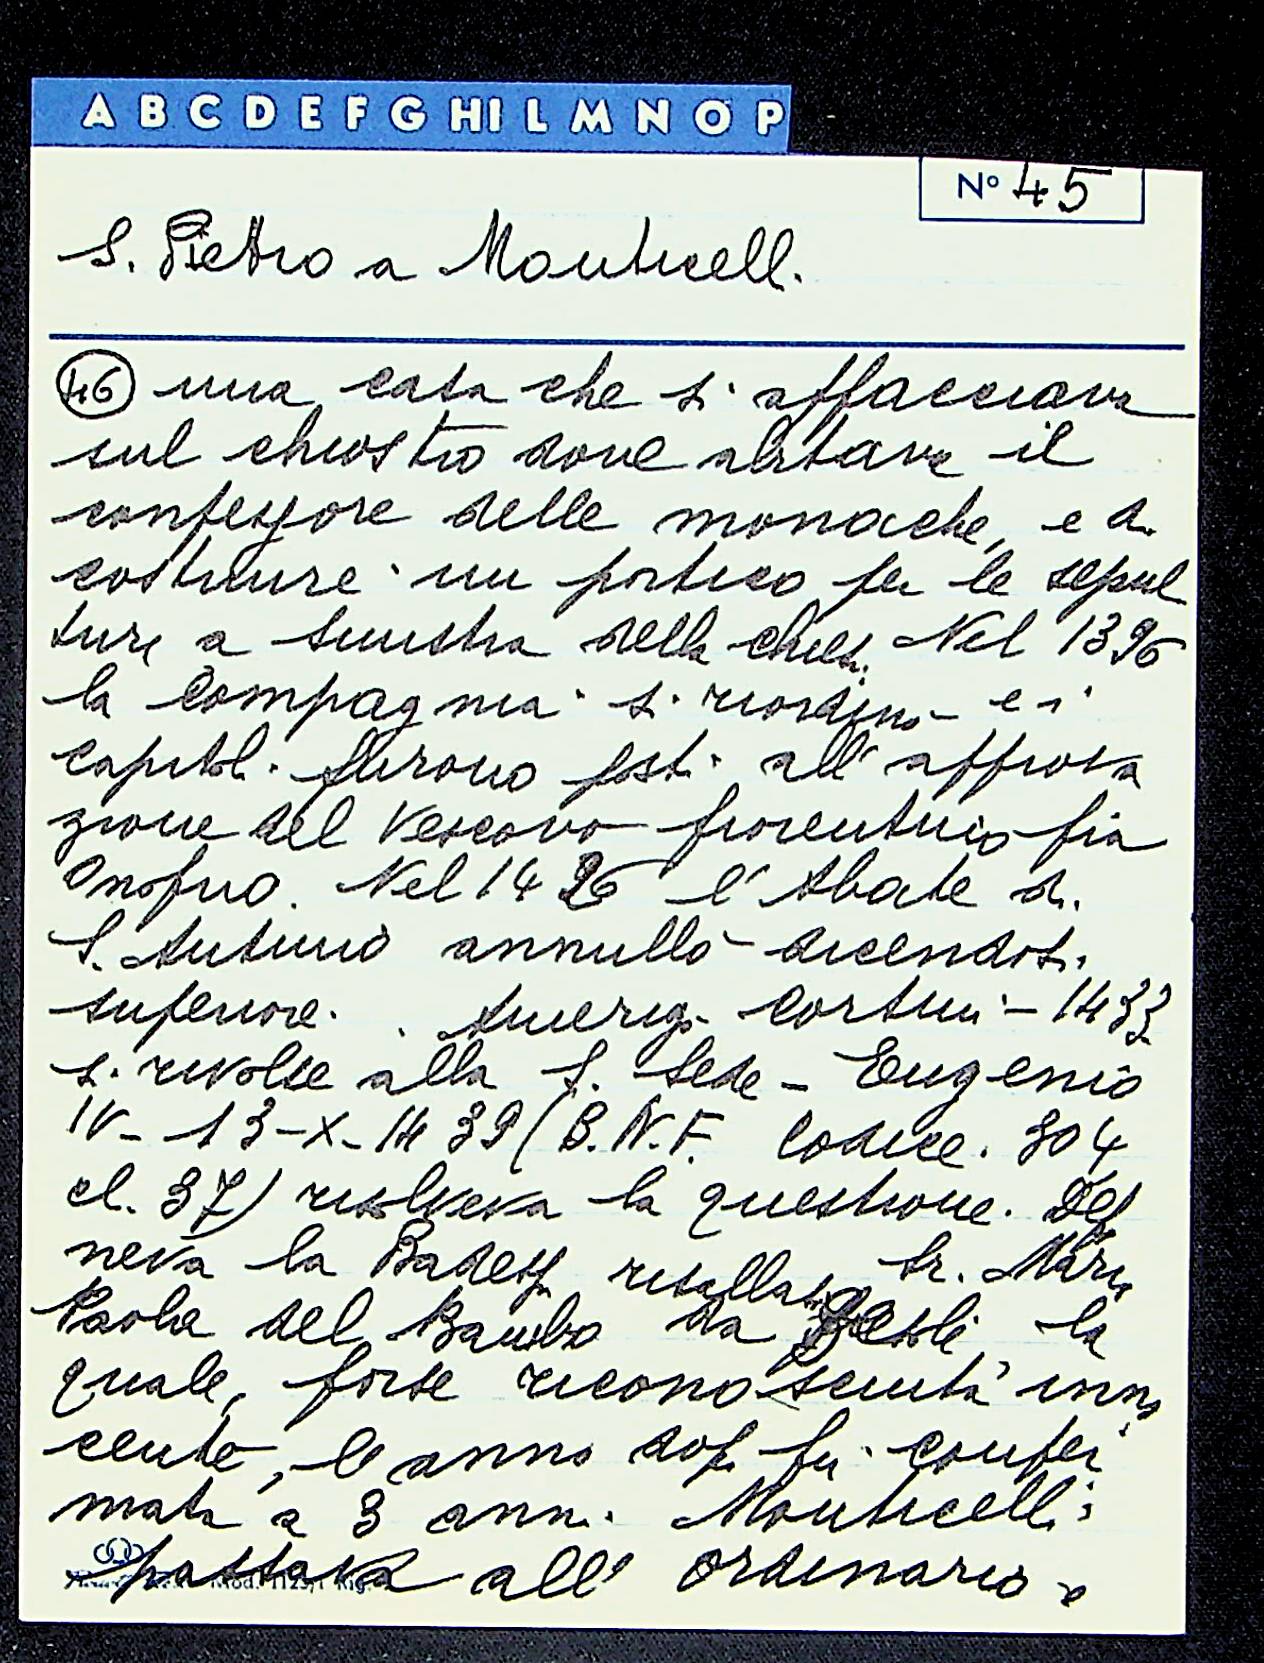 A B C D E F G HI L M N O P
N° 45
S. Pietro a Monticelli
46 una casa che si affacciava
sul chiostro dove abitava il
confessore delle monache, e a
costruire un portico per le sepul
ture a sinistra della chiesa. Nel 1396
la Compagnia si riordinò e i
capitoli furono posti all'approva
zione del Vescovo fiorentino fra
Onofrio. Nel 1426 l'Abate di
S. Antimo annullò dicendosi
superiore. Amerigo Cortini - 1433
si rivolse alla S. Sede - Eugenio
IV - 13-X-1439 (B.N.F. Codice. 304
cl. 37) risolveva la questione.
neva la Badessa Sr. Maria
Paola del Bambo da la
quale, forse riconosciuta inno
cente, l'anno dopo fu confer
mata a 3 anni. Monticelli
passava all'ordinario e
Mod. 1125/1 Rig.